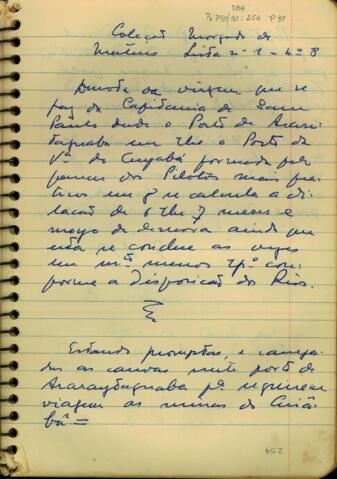 SBH
Pi 790/10: 254 P 99
Coleção Morgado de
Mateus Lista nº 1 - nº 8
da viagem que se
faz da Capitania de Sam
Paulo desde o Porto de Arari
taguaba em the o Porto da
Vª do Cuyabá formada pelo
dos Pilotos mais pra
ticos em q̃ se calcula a di
lação de 6 the 7 mezes e
meyo de demora ainda que
não se conclue as vezes
em m.to menos tp.º con
forme a disposição dos Rios.
Estando promptas, e carrega
das as canoas neste porto de
Araraytaguaba pª seguirem
viagem as minas do Cuiá
bá =
254